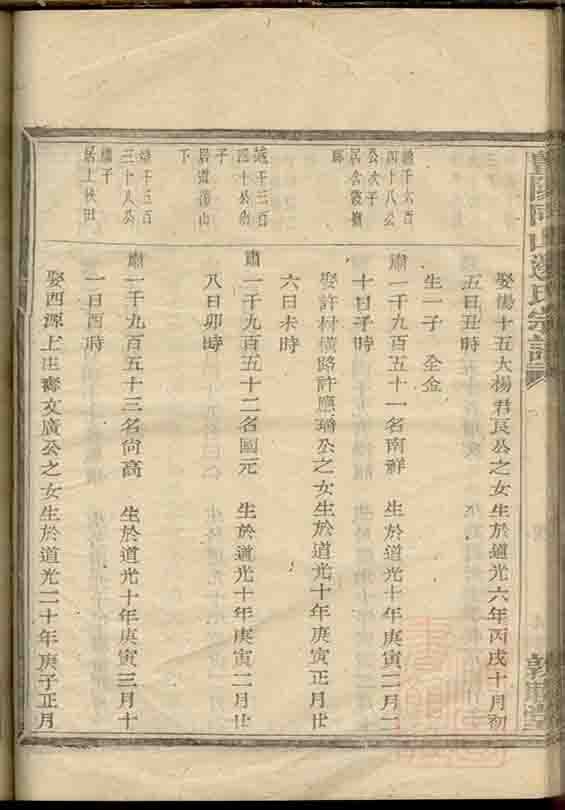 娶楊十五大楊君良公之女生於道光六年丙戌十月初
五日丑時
生一子　全金
肅一千九百五十一名南祥　生於道光十年庚寅二月二
十日子時
娶許村橫路許應瑞公之女生於道光十年庚寅正月廿
六日未時
肅一千九百五十二名國元　生於道光十年庚寅二月廿
八日卯時
肅一千九百五十三名尚高　生於道光十年庚寅三月十
一日酉時
娶西源上庄壽文廣公之女生於道光二十年庚子正月
千六百
四十八公
公次子
居
千三百
四十公
子
居道
山
下
千五百
三十八公
子
居上秋田
氏宗譜